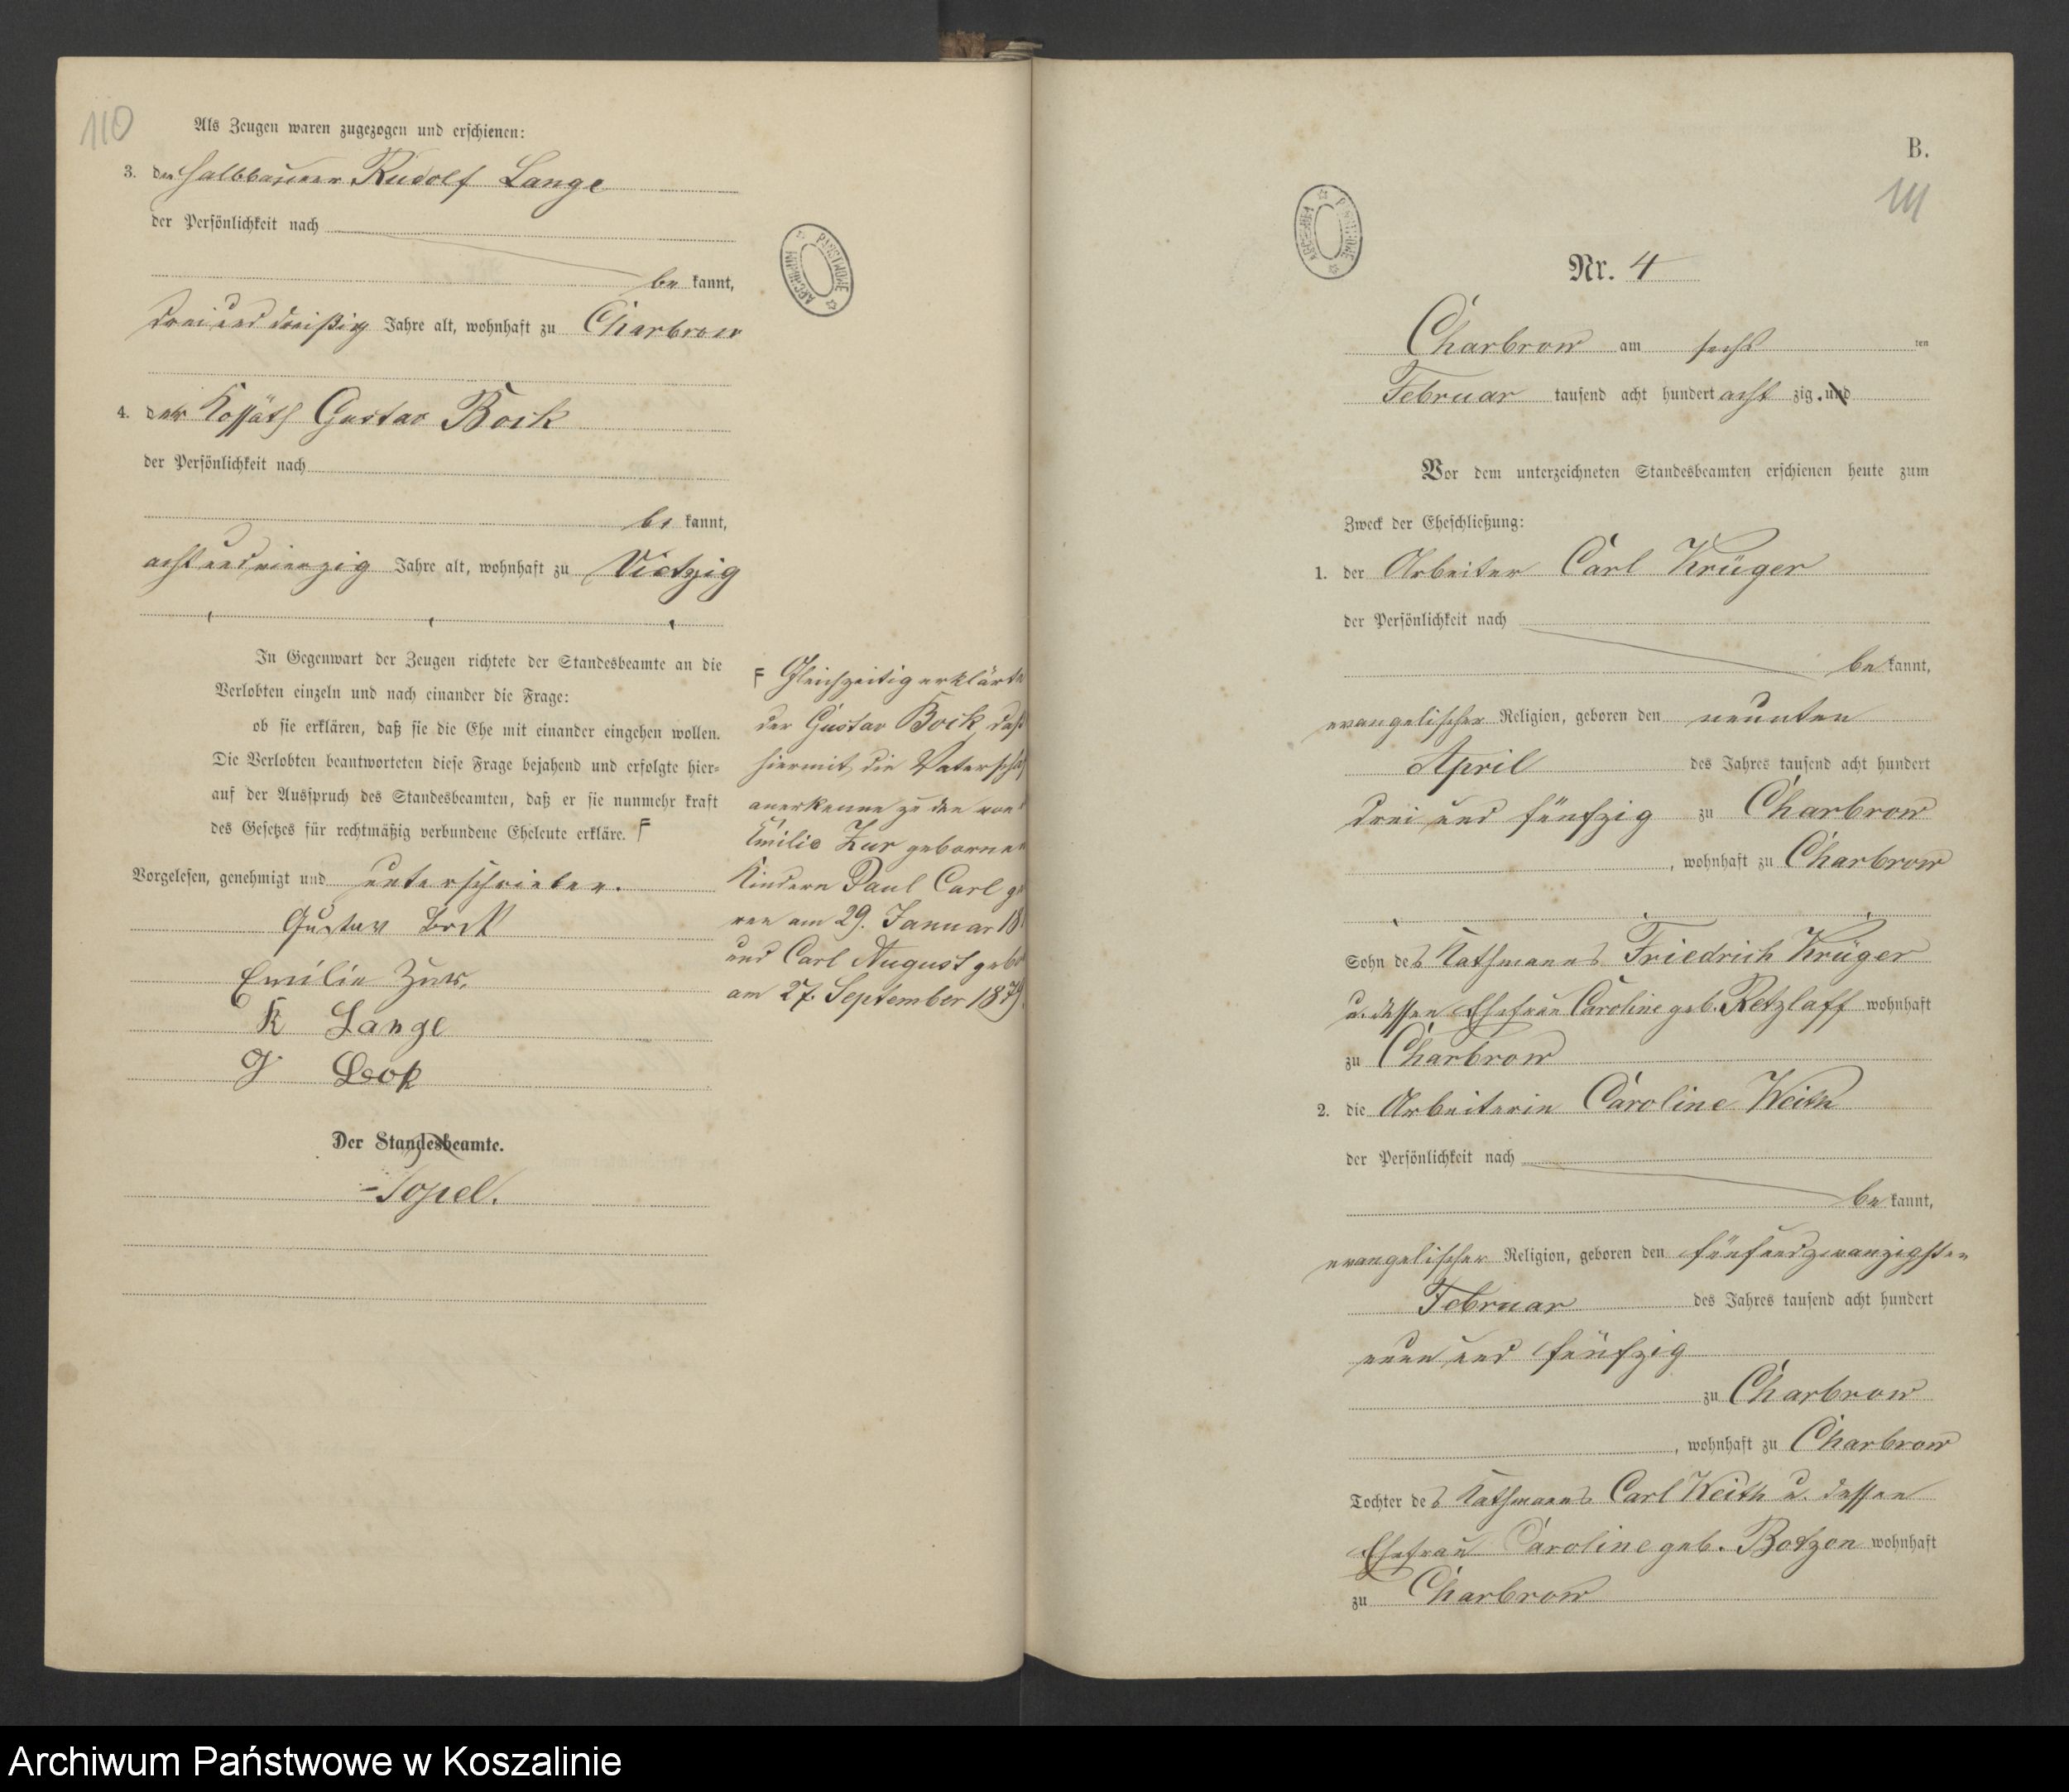 110
Als Zeugen waren zugezogen und erschienen:
3. der Halbbauer Rudolf Lange
der Persönlichkeit nach
be kannt,
drei und dreißig Jahre alt, wohnhaft zu Charbrow
4. der Kossäth Gustav Bock
der Persönlichkeit nach
be kannt,
acht und vierzig Jahre alt, wohnhaft zu Vietzig
In Gegenwart der Zeugen richtete der Standesbeamte an die
Verlobten einzeln und nach einander die Frage:
ob sie erklären, daß sie die Ehe mit einander eingehen wollen.
Die Verlobten beantworteten diese Frage bejahend und erfolgte hier-
auf der Ausspruch des Standesbeamten, daß er sie nunmehr kraft
des Gesetzes für rechtmäßig verbundene Eheleute erkläre. F
Vorgelesen, genehmigt und unterschrieben.
Gustav Bock
Emilie Zur.
R Lange
G Bock
Der Standesbeamte.
Topel.
F Gleichzeitig erklärte
der Gustav Bock, daß
hiermit die Vaterscha
anerkenne zu den von
Emilie Zur geborne
Kindern Paul Carl ge
ren am 29. Januar 18
und Carl August gebo
am 27. September 1879.
ARCHIWUM PAŃSTWOWE
B.
111
ARCHIWUM PAŃSTWOWE
Nr. 4
Charbrow am sechs ten
Februar tausend acht hundert acht zig. und
Vor dem unterzeichneten Standesbeamten erschienen heute zum
Zweck der Eheschließung:
1. der Arbeiter Carl Krüger
der Persönlichkeit nach
be kannt,
evangelischer Religion, geboren den neunten
April des Jahres tausend acht hundert
drei und fünfzig zu Charbrow
, wohnhaft zu Charbrow
Sohn des Kathmanns Friedrich Krüger
u. dessen Ehefrau Caroline geb. Retzlaff wohnhaft
zu Charbrow
2. die Arbeiterin Caroline Weith
der Persönlichkeit nach
be kannt,
evangelischer Religion, geboren den fünfundzwanzigsten
Februar des Jahres tausend acht hundert
neun und fünfzig
zu Charbrow
, wohnhaft zu Charbrow
Tochter des Kathmanns Carl Weith u. dessen
Ehefrau Caroline geb. Botzon wohnhaft
zu Charbrow
Archiwum Państwowe w Koszalinie